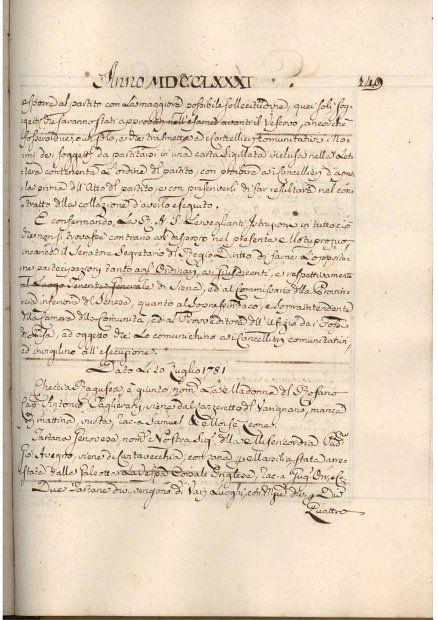 Anno MDCCLXXXI
149
esporre al partito con la maggiore possibile sollecitudine, quei soli sog-
getti che saranno stati approvati nell'esame avanti il Vescovo, ancorchè
fossero due, o un solo, e che trasmetta ai Cancellieri Comunitativi i No-
mi dei soggetti da partitarsi in una carta sigillata inclusa nella let-
tera contenente l'ordine di partito, con
la prima dell'Atto di partito, e con di far resultare nel con-
tratto della collazione d'averlo eseguito.
E confermando la R. A. S. le veglianti Istruzioni in tutto ciò
che non si trovasse contrario al disposto nel presente Motuproprio
incarica il Senatore Segretario del Regio Diritto di farne l'opportu-
ne partecipazioni tanto agl'Ordinari, ai Giusdicenti, e respettivamente
al Luogo Tenente Generale di Siena, ed al Commissario della Provin-
cia inferiore di Siena, quanto al Soprassindaco, e Soprintendente
della Camera delle Comunità, ed al Provveditore dell'Ufizio dei Fossi
di Pisa, ad oggetto che lo comunichino ai Cancellieri comunitativi,
ed invigilino all'esecuzione.
Dato li 20 Luglio 1781
Checcia Ragusea, è giunto, nom. La Madonna del Rosario
Cap. Antonio viene dal Lazzeretto del Varignano, manca
mattina, vuota, rac. a Samuel e Moisè Leone.
Tartana Genovese, nom. Nostra Sig. della Misericordia
Gio. viene di Civitavecchia, con
stata dalla La Corsale Inglese, rac. a
Due Tartane div. vengono di Varj Luoghi, con
Quattro